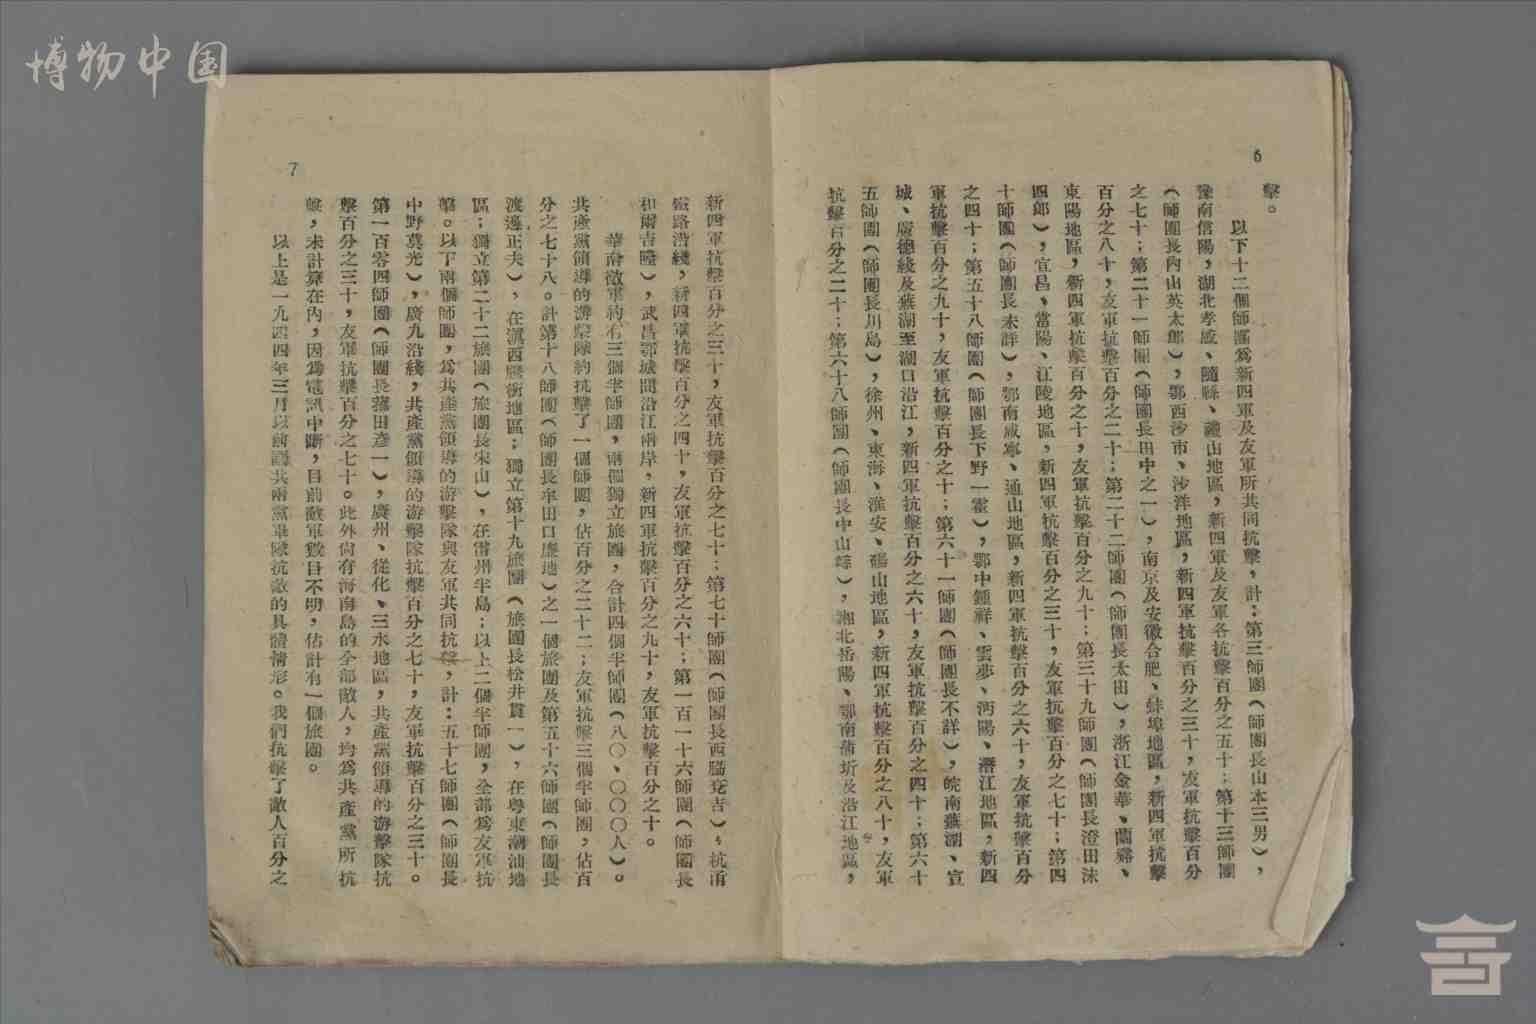 博物中国
6
擊。
以下十二個師團爲新四軍及友軍所共同抗擊，計：第三師團（師團長山本三男），
豫南信陽，湖北孝感、隨縣、禮山地區，新四軍及友軍各抗擊百分之五十；第十三師團
（師團長內山英太郎），鄂西沙市、沙洋地區，新四軍抗擊百分之三十，友軍抗擊百分
之七十；第二十一師團（師團長田中之一），南京及安徽合肥、蚌埠地區，新四軍抗擊
百分之八十，友軍抗擊百分之二十；第二十二師團（師團長太田），浙江金華、蘭谿、
東陽地區，新四軍抗擊百分之十，友軍抗擊百分之九十；第三十九師團（師團長澄田𧶽
四郎），宜昌、當陽、江陵地區，新四軍抗擊百分之三十，友軍抗擊百分之七十；第四
十師團（師團長未詳），鄂南咸寧、通山地區，新四軍抗擊百分之六十，友軍抗擊百分
之四十；第五十八師團（師團長下野一霍），鄂中鍾祥、雲夢、沔陽、潛江地區，新四
軍抗擊百分之九十，友軍抗擊百分之十；第六十一師團（師團長不詳），皖南蕪湖、宣
城、廣德綫及蕪湖至湖口沿江，新四軍抗擊百分之六十，友軍抗擊百分之四十；第六十
五師團（師團長川島），徐州、東海、淮安、碭山地區，新四軍抗擊百分之八十，友軍
抗擊百分之二十；第六十八師團（師團長中山惇），湘北岳陽、鄂南蒲圻及沿江地區，
7
新四軍抗擊百分之三十，友軍抗擊百分之七十；第七十師團（師團長西腦竞吉），杭甬
鐵路沿綫，新四軍抗擊百分之四十，友軍抗擊百分之六十；第一百一十六師團（師團長
和爾吉隆），武昌鄂城間沿江兩岸，新四軍抗擊百分之九十，友軍抗擊百分之十。
華南敵軍約有三個半師團，兩個獨立旅團，合計四個半師團（八〇、〇〇〇人）。
共產黨領導的游擊隊約抗擊了一個師團，佔百分之二十二；友軍抗擊三個半師團，佔百
分之七十八。計第十八師團（師團長牟田口廉地）之一個旅團及第五十六師團（師團長
渡邊正夫），在滇西騰衝地區；獨立第十九旅團（旅團長松井貫一），在粵東潮汕地
區；獨立第二十二旅團（旅團長宋山），在雷州半島；以上二個半師團，全部爲友軍抗
擊。以下兩個師團，爲共產黨領導的游擊隊與友軍共同抗擊，計：五十七師團（師團長
中野莫光），廣九沿綫，共產黨領導的游擊隊抗擊百分之七十，友軍抗擊百分之三十。
第一百零四師團（師團長蒲田彥一），廣州、從化、三水地區，共產黨領導的游擊隊抗
擊百分之三十，友軍抗擊百分之七十。此外尚有海南島的全部敵人，均爲共產黨所抗
擊，未計算在內，因爲電訊中斷，目前敵軍數目不明，估計有一個旅團。
以上是一九四四年三月以前國共兩黨軍隊抗敵的具體情形。我們抗擊了敵人百分之